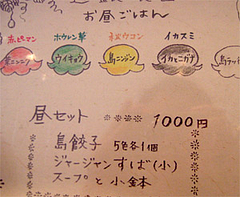 お昼ごはん
赤ピーマン ホウレン草 紅ウコン イカスミ
ウイキョウ 島ニンジン イカとニガナ 島ラッ
昼セット 1000円
島餃子 5色各1個
ジャージャンすば(小)
スープと小鉢